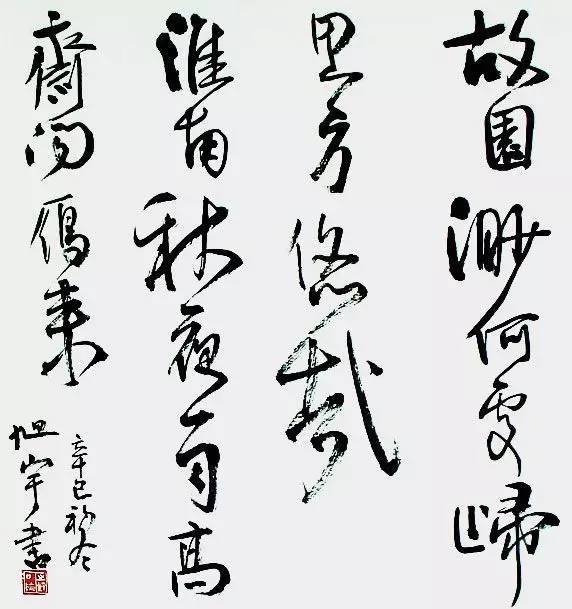 故園渺何處歸
思方悠哉
淮南秋夜雨高
齋闻鴈来
辛巳初冬
旭宇書